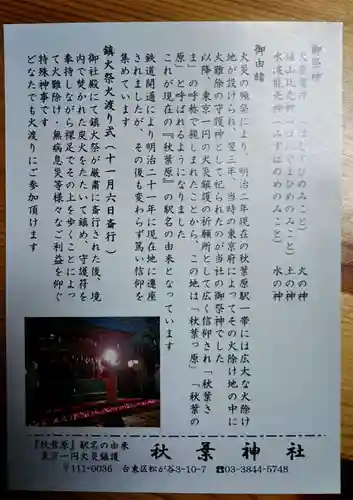 御祭神
火産霊大神（ほむすびのみこと）　火の神
埴山比売神（はにやまひめのみこと）　土の神
水波能売神（みずはのめのみこと）　水の神
御由緒
火災の頻発により、明治二年現在の秋葉原駅一帯には広大な火除け
地が設けられ、翌三年、当時の東京府によってその火除け地の中に
火難除の守護神として祀られたのが当社の御祭神でした
以降、東京一円の火災鎮護の祈願所として広く信仰され「秋葉さ
ま」の呼称で親しまれたことから、この地は「秋葉っ原」、「秋葉の
原」と呼ばれるようになりました
これが現在の『秋葉原』の駅名の由来となっています
鉄道開通により明治二十一年に現在地に遷座
されましたが、その後も変わらず篤い信仰を
集めています
鎮火祭火渡り式（十一月六日斎行）
御社殿にて鎮火祭が厳粛に斎行された後、境
内で焚かれた炭火をたたいて鎮め、守護符を
奉持しながら裸足でその上を歩くことによっ
て火難除け、無病息災等様々なご利益を仰ぐ
特殊神事です
どなたでも火渡りにご参加頂けます
『秋葉原』駅名の由来
東京一円火災鎮護
秋葉神社
〒111-0036　台東区松が谷3-10-7　☎03-3844-5748